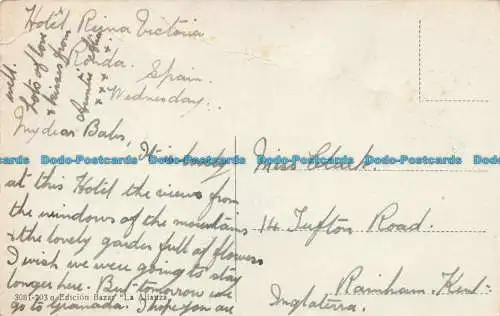 Hotel Reina Victoria
Ronda.
Spain.
Wednesday.
My dear Babs,
It is lovely
at this Hotel the views from
the windows of the mountains
& the lovely garden full of flowers
I wish we were going to stay
longer here. But tomorrow we
go to Granada. I hope you are
well.
Lots of love
& kisses from
Auntie
x x x x
Miss Clark.
14 Tufton Road.
Rainham. Kent.
Inglaterra.
3081-203 Edición Bazar "La Alianza"
Dodo-Postcards Dodo-Postcards Dodo-Postcards Dodo-Postcards Dodo-Postcards
Dodo-Postcards Dodo-Postcards Dodo-Postcards Dodo-Postcards Dodo-Postcards